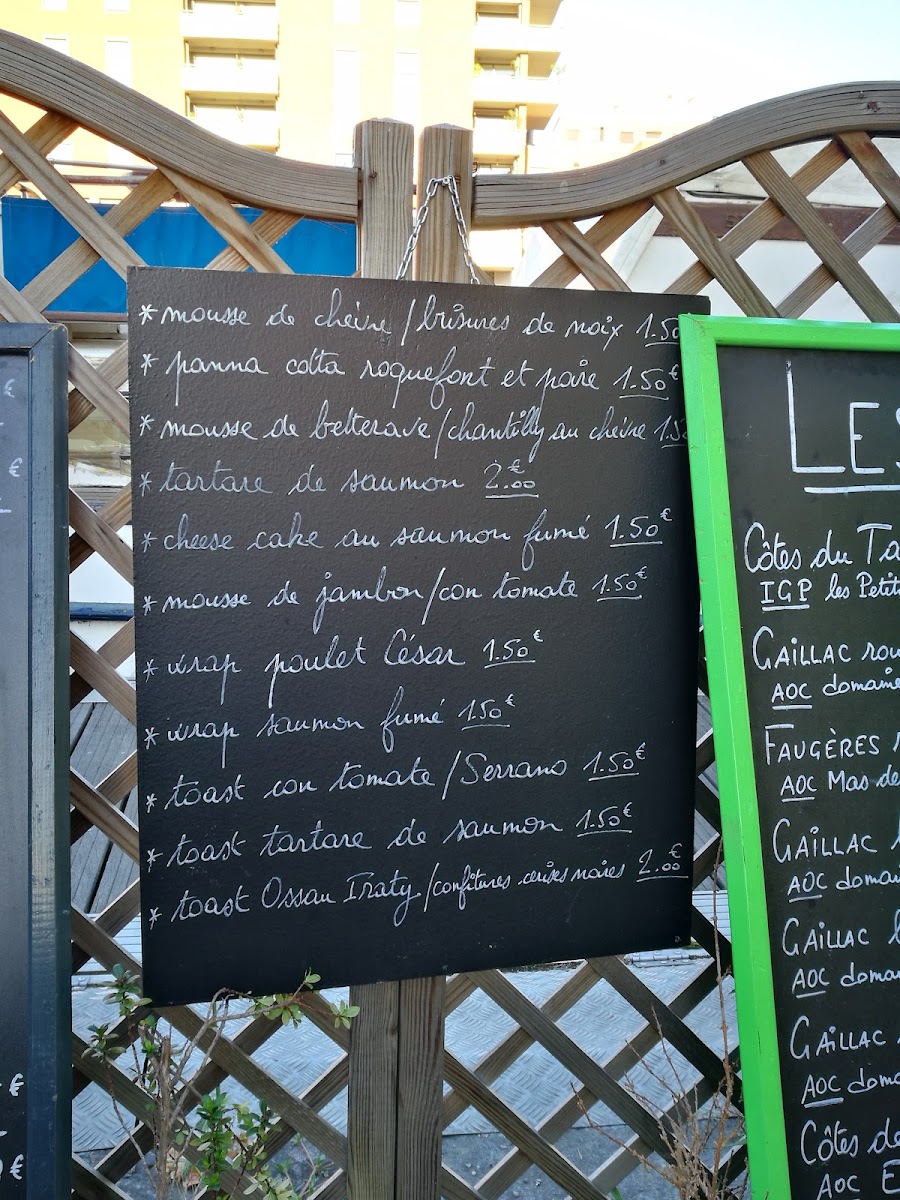 * mousse de chèvre / brisures de noix 1.50
* panna cotta roquefort et poire 1.50€
* mousse de betterave / chantilly au chèvre 1.5
* tartare de saumon 2.00€
* cheese cake au saumon fumé 1.50€
* mousse de jambon / con tomate 1.50€
* wrap poulet César 1.50€
* wrap saumon fumé 1.50€
* toast con tomate / Serrano 1.50€
* toast tartare de saumon 1.50€
* toast Ossau Iraty / confitures cerises noires 2.00€
LES
Côtes du Ta
IGP les Petit
GAILLAC rou
AOC domaine
FAUGÈRES
AOC Mas de
GAILLAC
AOC domai
GAILLAC
AOC domai
GAILLAC
AOC doma
Côtes de
AOC E
€
€
€
€